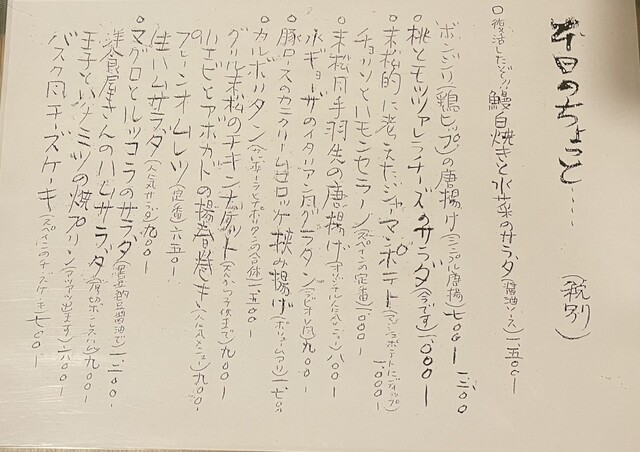 本日のちょっと…… (税別)
○復活したぞ!! 鰻白焼きと水菜のサラダ(醤油ソース)一、五〇〇ー
ボンジリ(鶏ヒップ)の唐揚げ(シンプル唐揚)七〇〇ー
○桃とモッツァレラチーズのサラダ(今です)一、〇〇〇ー
○末松的に考えたジャーマンポテト
チョリソとハモンセラーノ(スペインの定番)
○末松風手羽先の唐揚げ(オリジナル)八〇〇ー
水ギョーザのイタリアン風グラタン(ラビオリ風)九〇〇ー
○豚ロースのカニクリームコロッケ挟み揚げ(ボリューム)
○カルボリタン(カルボナーラとナポリタンの合体)一、五〇〇ー
グリル末松のチキンナゲット九〇〇ー
小エビとアボカドの揚春巻き(人気メニュー)九〇〇ー
プレーンオムレツ(定番)六五〇ー
生ハムサラダ(人気サラダ)九〇〇ー
○マグロとルッコラのサラダ
洋食屋さんのハムサラダ(厚切ボンレスハム)九〇〇ー
玉子とハチミツの焼プリン(アツアツ出ます)
バスク風チーズケーキ(スペインのチーズケーキ)七〇〇ー